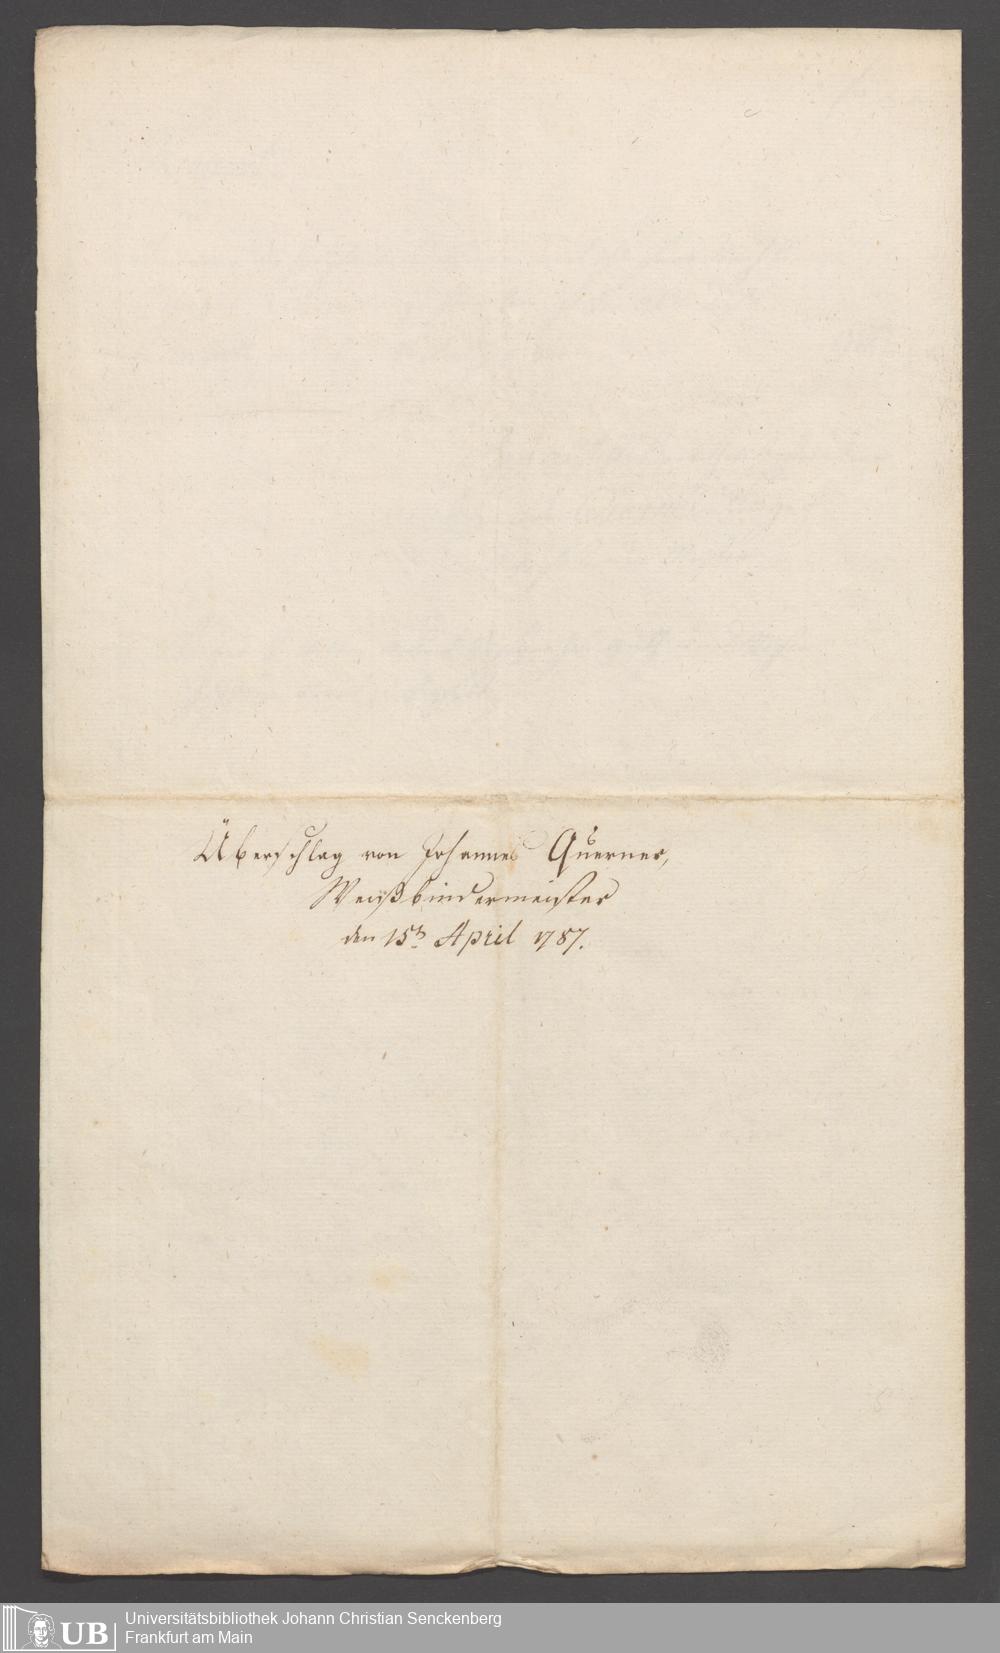 Überschlag von Johannes Querner,
Weißbindermeister
den 15t. April 1787.
UB
Universitätsbibliothek Johann Christian Senckenberg
Frankfurt am Main